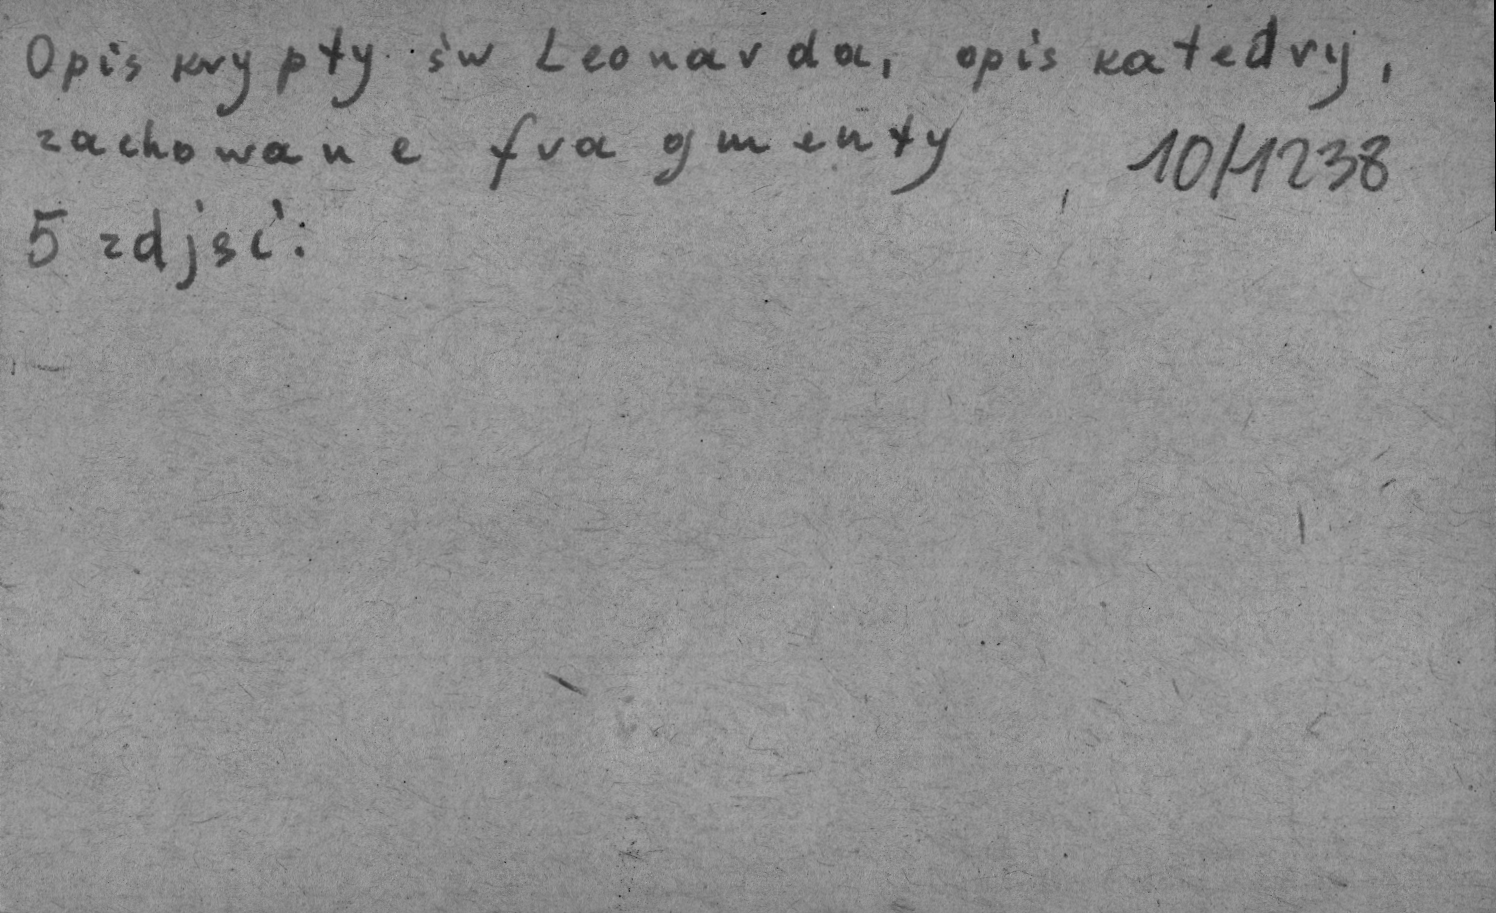 Opis krypty św Leonarda, opis katedry,
zachowane fragmenty 10/1238
5 zdjęć.